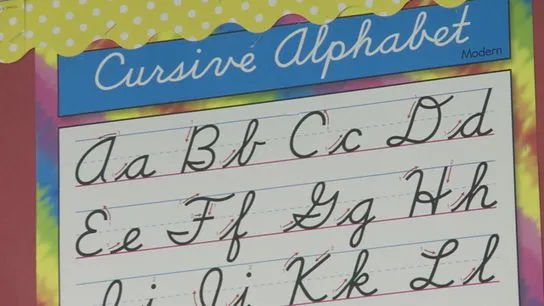 Cursive Alphabet
Modern
Aa Bb Cc Dd
Ee Ff Gg Hh
Ii Jj Kk Ll